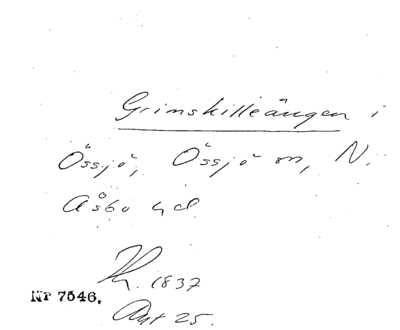 Grimskilleängen i
Össjö, Össjö sn, N.
Åsbo hd
1837
Nr 7546.
Akt 25.